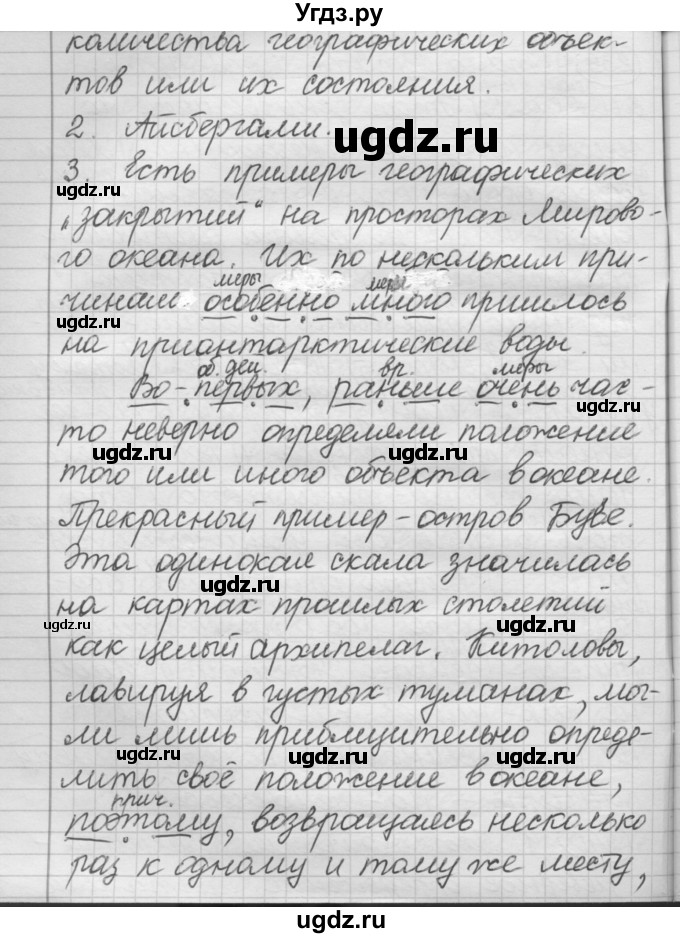 Угдз.ру
количества географических объек-
тов или их состояния.
2. Айсбергами.
ugdz.ru
3. Есть примеры географических
ugdz.ru
„закрытий“ на просторах Мирово-
го океана. Их по нескольким при-
меры меры
чинам особенно много пришлось
ugdz.ru
на приантарктические воды.
об. дей. вр. меры
Во-первых, раньше очень час-
ugdz.ru
то неверно определяли положение
ugdz.ru ugdz.ru
того или иного объекта в океане.
Прекрасный пример - остров Буве.
Эта одинокая скала значилась
ugdz.ru
на картах прошлых столетий
ugdz.ru ugdz.ru
как целый архипелаг. Китоловы,
лавируя в густых туманах, мог-
ли лишь приблизительно опреде-
ugdz.ru ugdz.ru
лить своё положение в океане,
прич.
поэтому, возвращаясь несколько
раз к одному и тому же месту,
ugdz.ru ugdz.ru
ugdz.ru